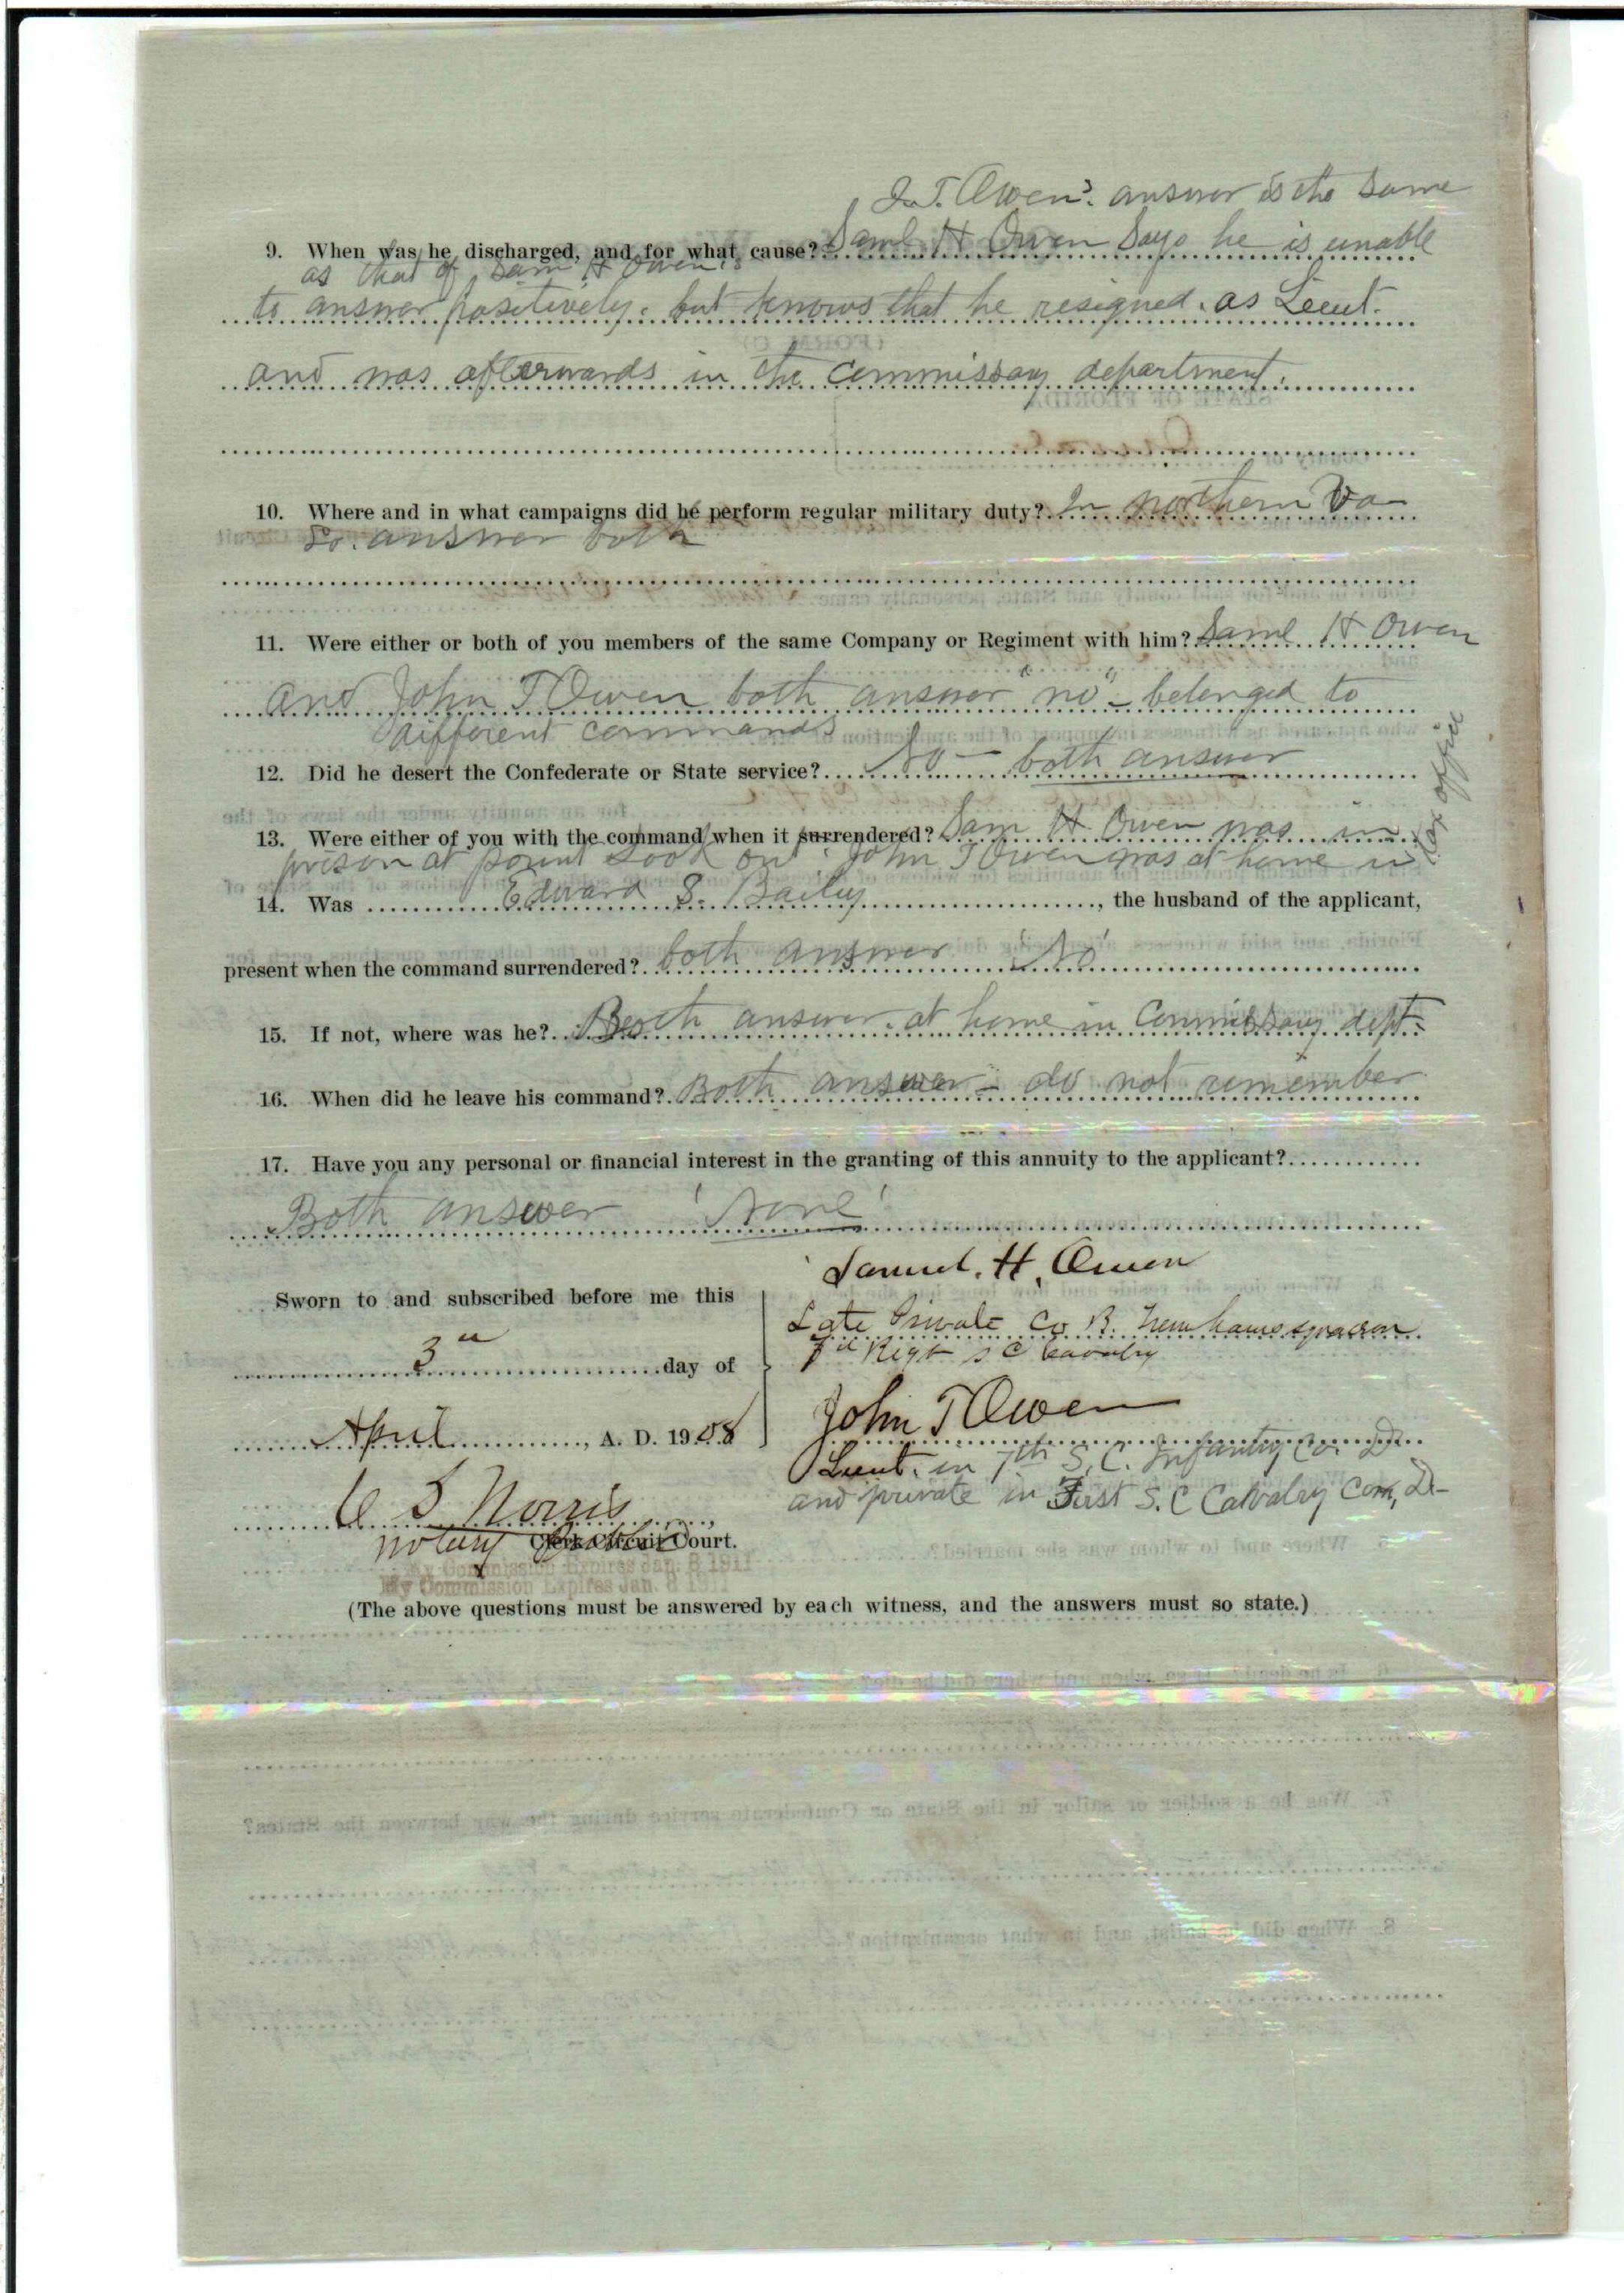 J. T. Owen's answer is the same
9. When was he discharged, and for what cause? Saml H Owen Says he is unable
as that of Sam H Owen's
to answer positively. but knows that he resigned. as Lieut.
and was afterwards in the Commissary department.
10. Where and in what campaigns did he perform regular military duty? In northern Va
So. answer both
11. Were either or both of you members of the same Company or Regiment with him? Saml H Owen
and John T Owen both answer "no" - belonged to
different commands
12. Did he desert the Confederate or State service? No - both answer
13. Were either of you with the command when it surrendered? Sam H Owen was in
prison at point Look out. John T Owen was at home in
tax office
14. Was Edward S. Bailey, the husband of the applicant,
present when the command surrendered? both answer 'No'
15. If not, where was he? Both answer. at home in Commissary dept.
16. When did he leave his command? Both answer - do not remember
17. Have you any personal or financial interest in the granting of this annuity to the applicant?
Both answer 'None'
Samuel. H. Owen
Sworn to and subscribed before me this
Late Private Co B.
7th Regt S C Cavalry
3rd day of
John T Owen
April, A. D. 1908
Lieut. in 7th S. C. Infantry Co. D.
and private in First S. C Calvalry Com, D-
C S Norris
Notary Public Clerk Circuit Court.
My Commission Expires Jan. 8 1911
My Commission Expires Jan. 8 1911
(The above questions must be answered by each witness, and the answers must so state.)